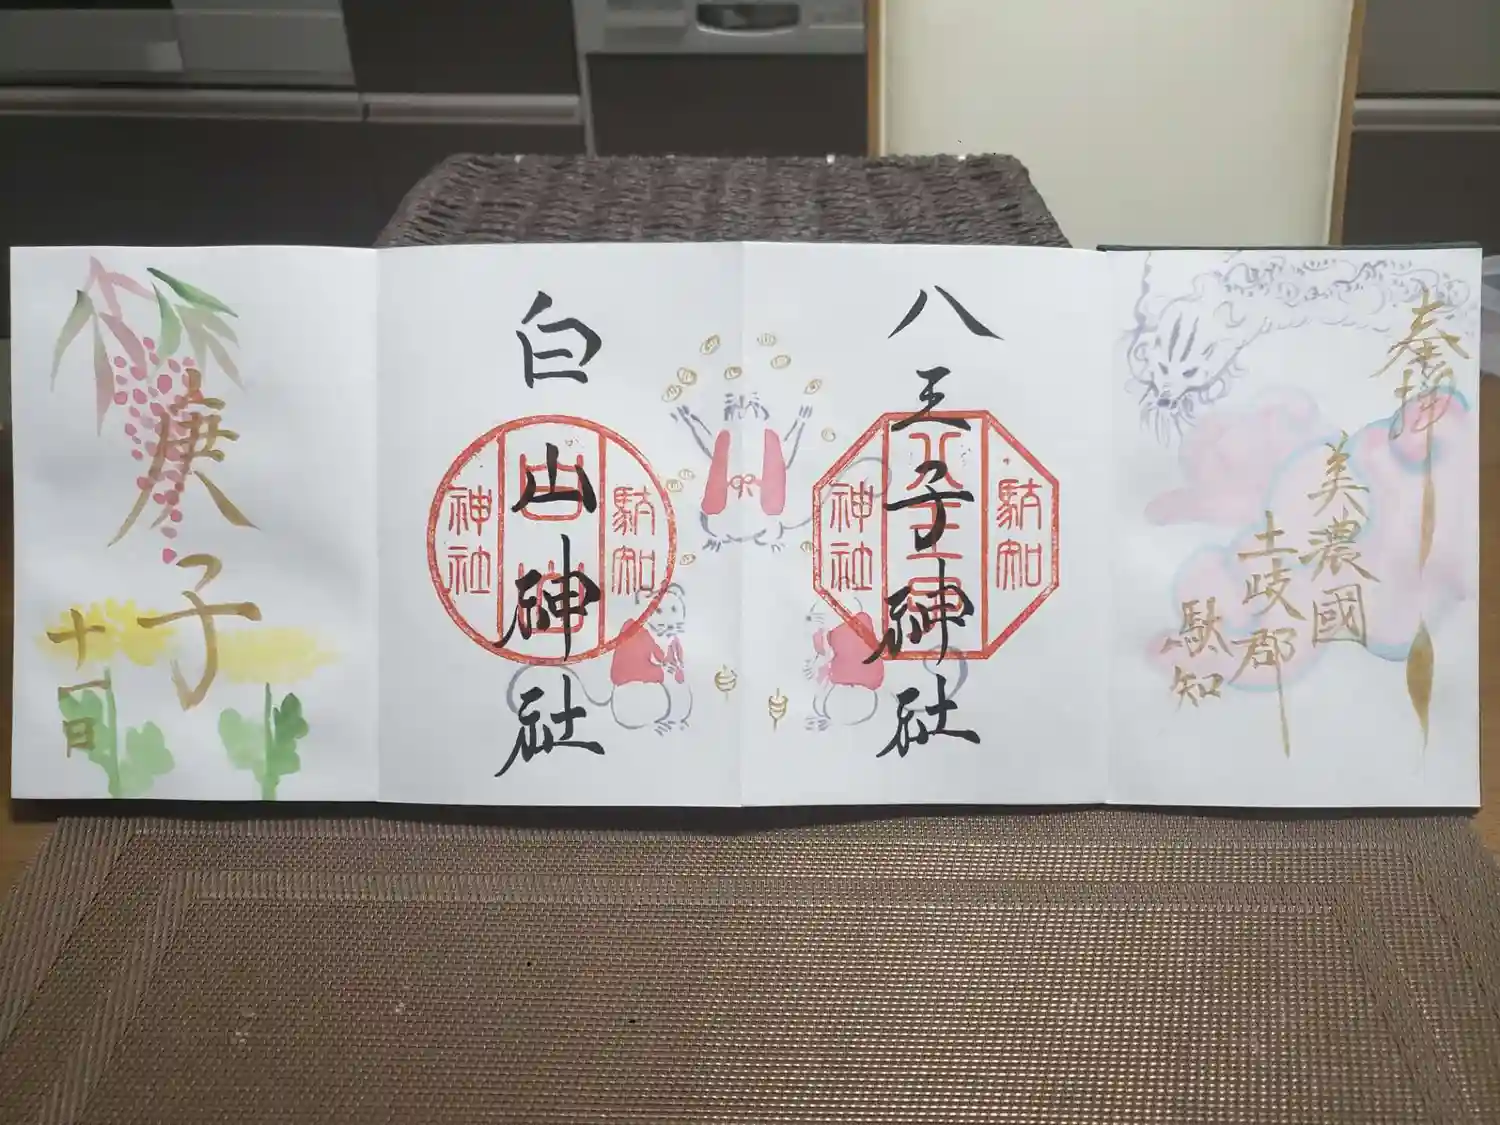 奉拝
美濃國
土岐郡
駄知
八王子神社
駄知
八王子宮
神社
白山神社
駄知
神社
庚子
十一日